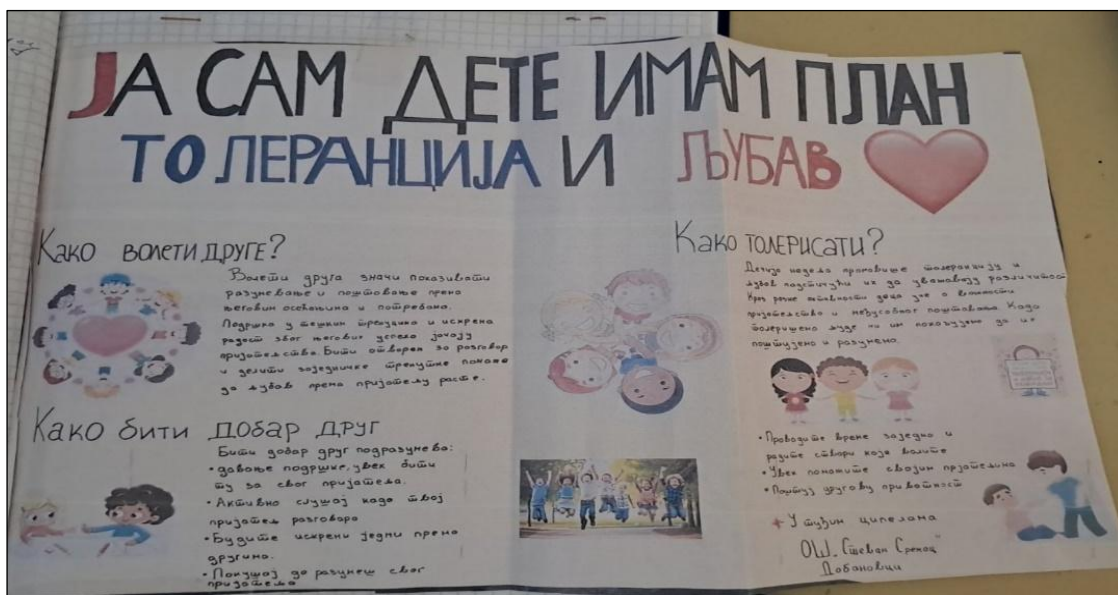 ЈА САМ ДЕТЕ ИМАМ ПЛАН
ТОЛЕРАНЦИЈА И ЉУБАВ
Како волети друге?
Волети друга значи показивати
разумевање и поштовање према
његовим осећањима и потребама.
Подршка у тешким тренуцима и искрена
радост због његових успеха јачају
пријатељство. Бити отворен за разговор
и делити заједничке тренутке помаже
да љубав према пријатељу расте.
Како бити добар друг
Бити добар друг подразумева:
• давање подршке, увек бити
ту за свог пријатеља.
• Активно слушај када твој
пријатељ разговара
• Будите искрени једни према
другима.
• Покушај да разумеш свог
пријатеља
Како толерисати?
Дечија недеља промовише толеранцију и
љубав подстичући их да уважавају различитост
Кроз разне активности деца уче о важности
пријатељства и међусобног поштовања. Када
толеришемо људе ми им показујемо да их
поштујемо и разумемо.
• Проводите време заједно и
радите ствари које волите
• Увек помажите својим пријатељима
• Поштуј другову приватност
У туђим ципелама
ОШ „Стеван Сремац"
Добановци